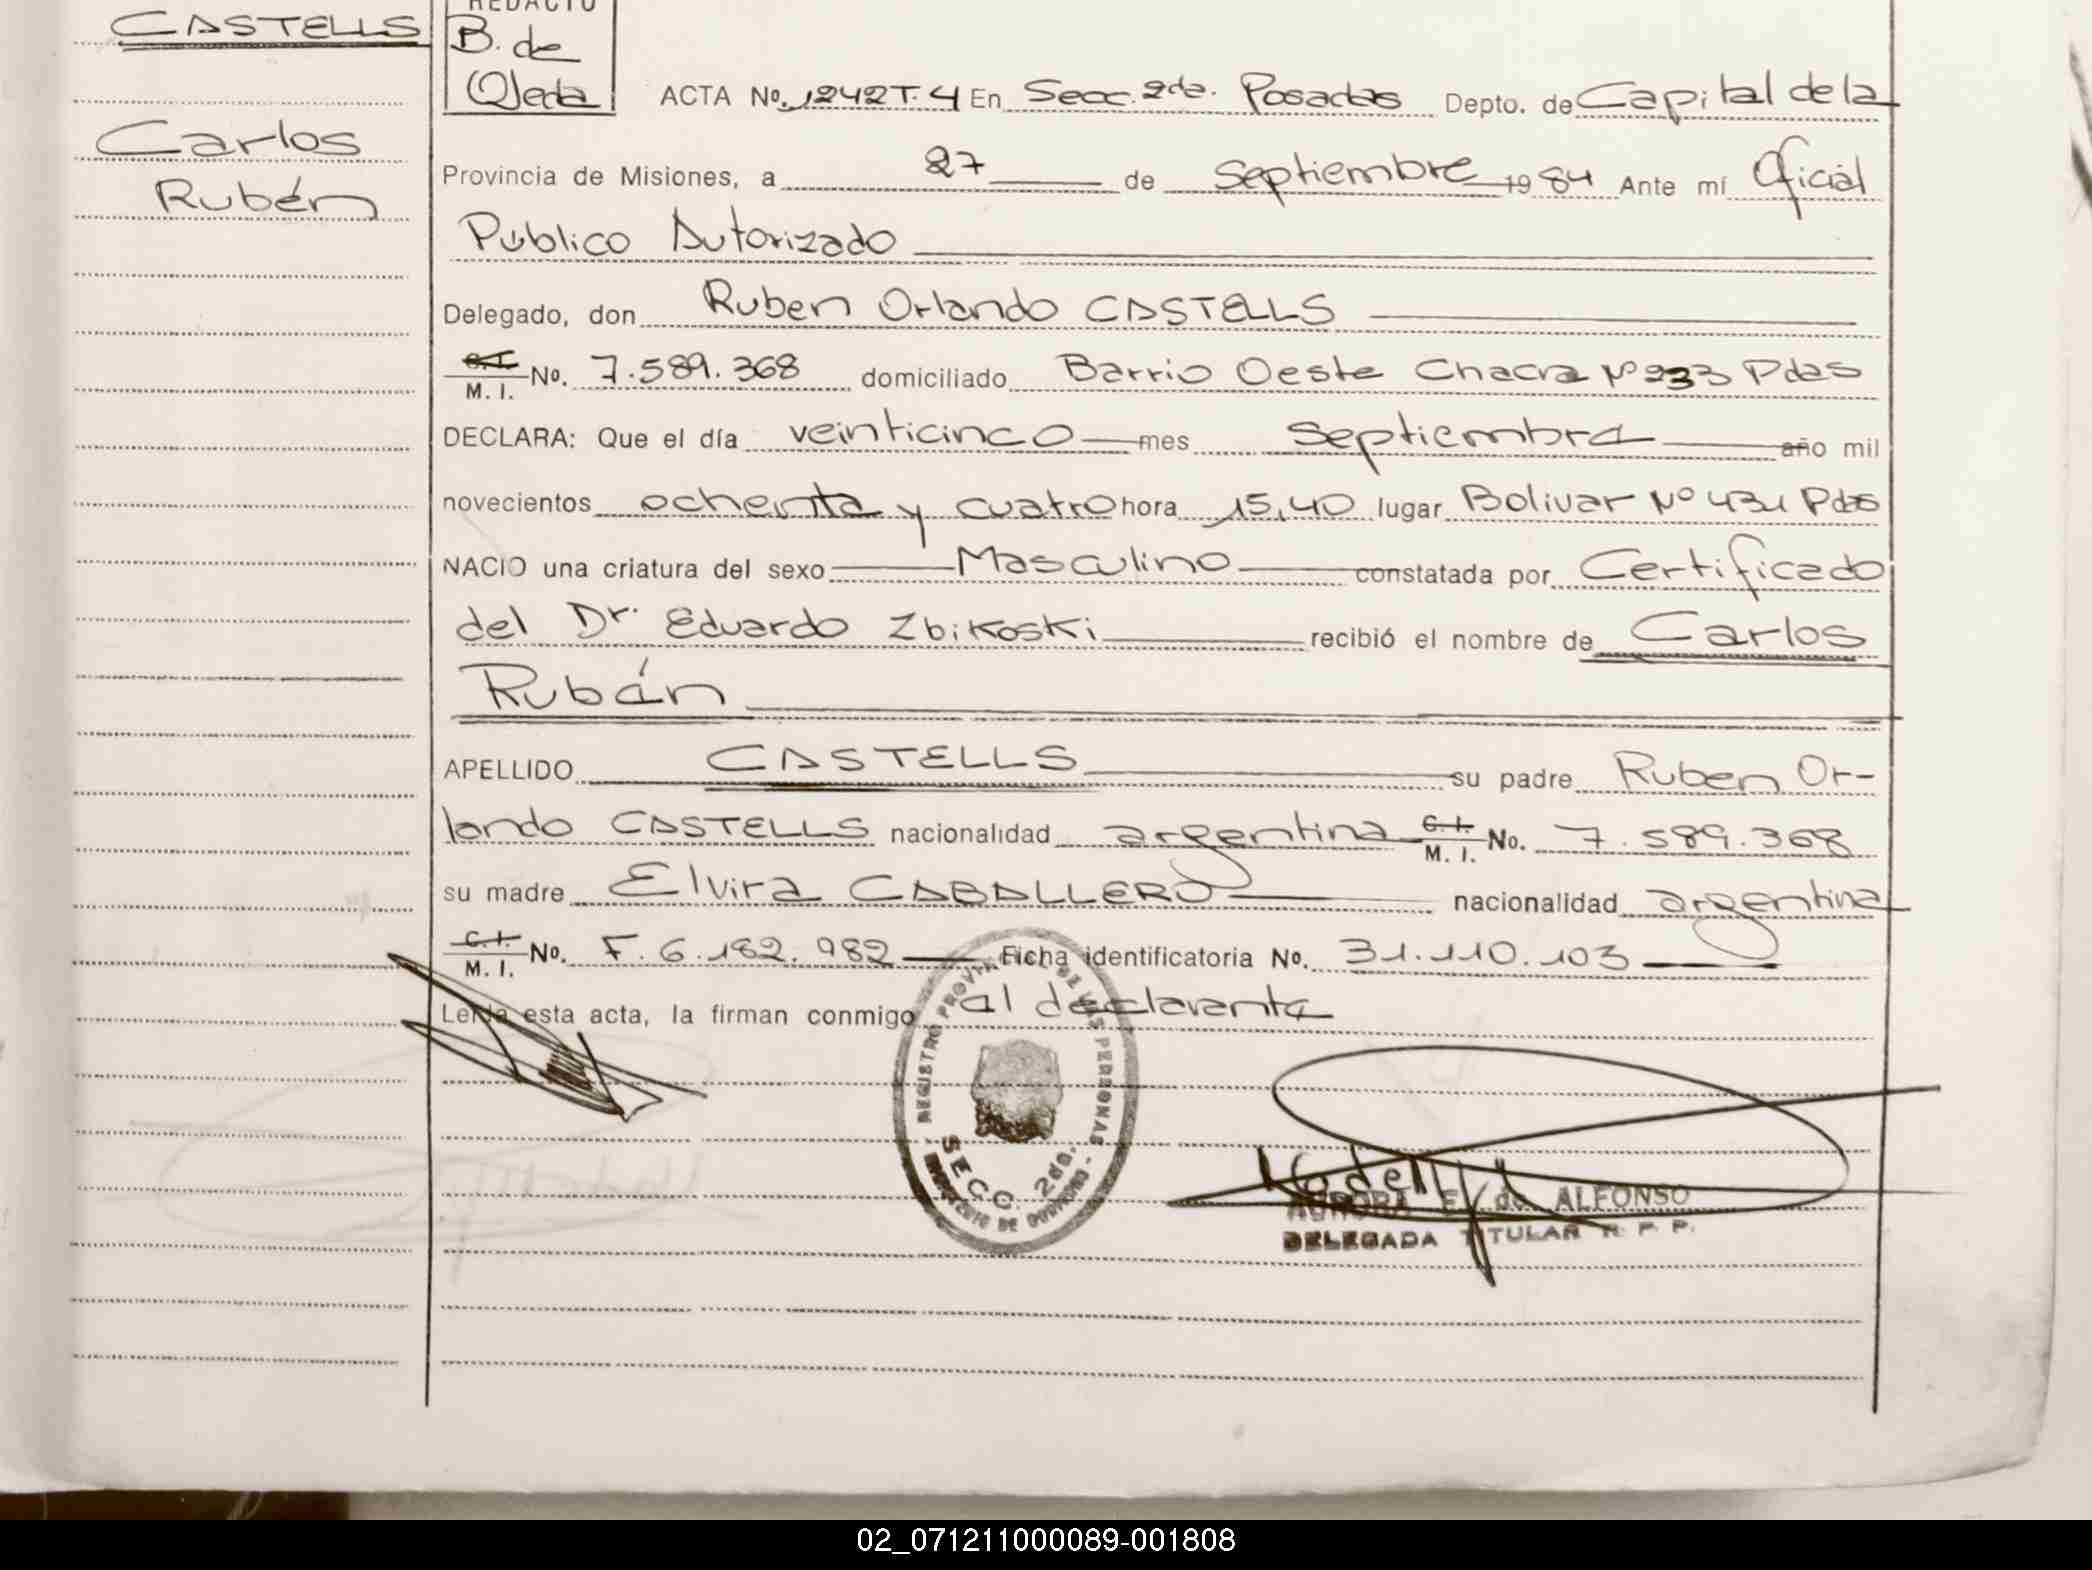 CASTELLS
Carlos
Rubén
REDACTO
B. de
Ojeda
ACTA No. 1242 T. 4 En Secc. 2da. Posadas Depto. de Capital de la
Provincia de Misiones, a 27 de septiembre 1984 Ante mí Oficial
Público Autorizado
Delegado, don Ruben Orlando CASTELLS
C.I. M. I. No. 7.589.368 domiciliado Barrio Oeste Chacra Nº 233 Pdas
DECLARA: Que el día veinticinco mes septiembre año mil
novecientos ochenta y cuatro hora 15,40 lugar Bolivar Nº 431 Pdas
NACIO una criatura del sexo Masculino constatada por Certificado
del Dr. Eduardo Zbikoski recibió el nombre de Carlos
Rubén
APELLIDO CASTELLS su padre Ruben Or-
lando CASTELLS nacionalidad argentina C.I. M. I. No. 7.589.368
su madre Elvira CABALLERO nacionalidad argentina
C.I. M. I. No. F. 6.182.982 Ficha identificatoria No. 31.110.103
Leída esta acta, la firman conmigo el declarante
REGISTRO PROVINCIAL DE LAS PERSONAS
SECC. 2da.
AURORA E. de ALFONSO
DELEGADA TITULAR R. P. P.
02_071211000089-001808